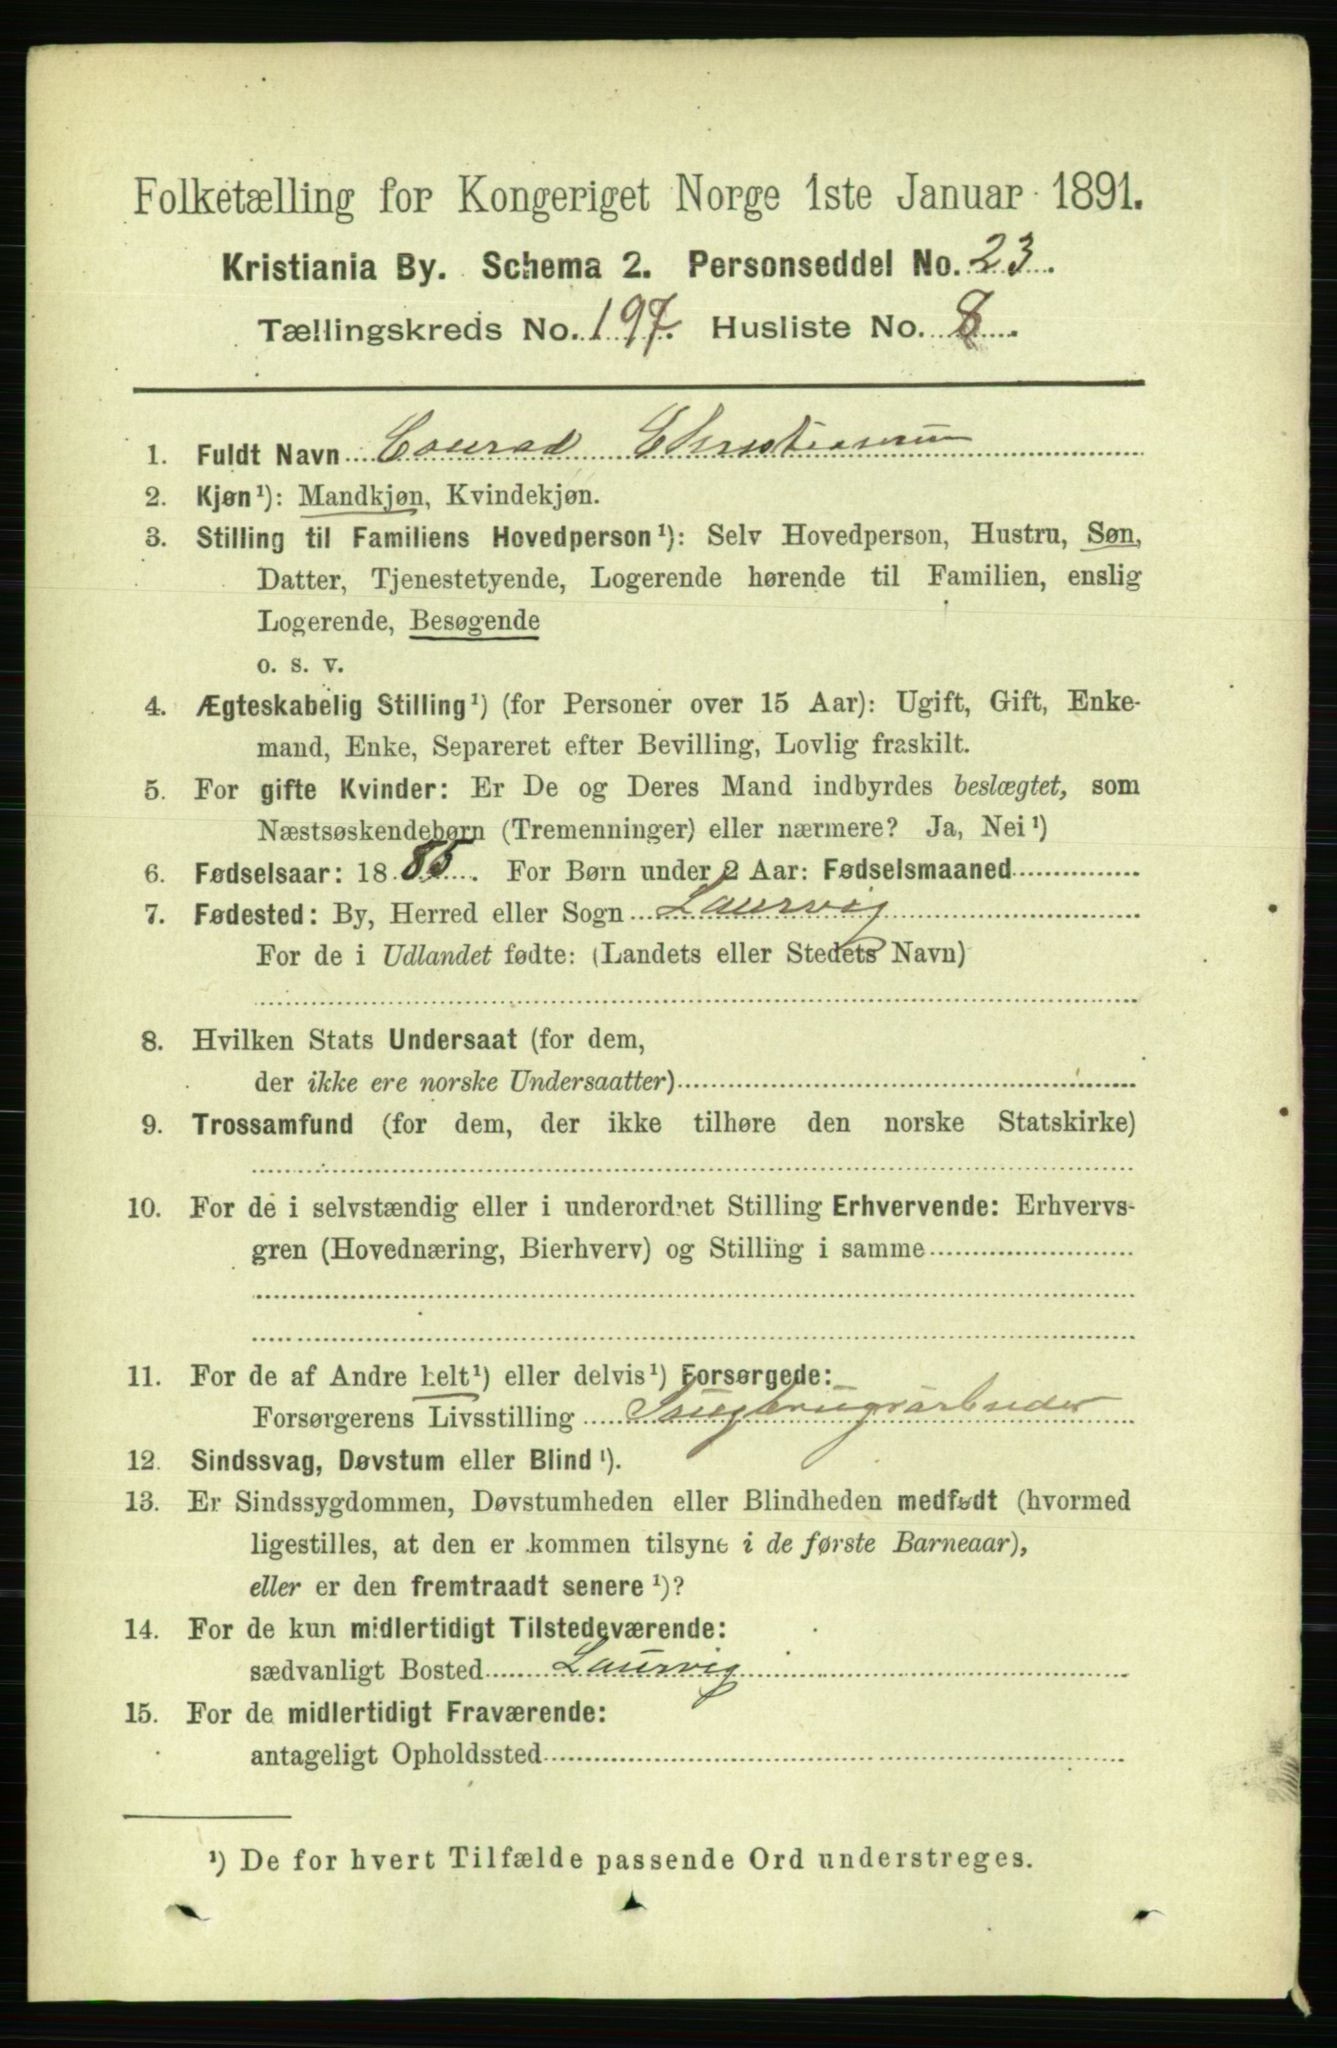 Folketælling for Kongeriget Norge 1ste Januar 1891.
Kristiania By. Schema 2. Personseddel No. 23.
Tællingskreds No. 197. Husliste No. 8.
1. Fuldt Navn Conrad Christiansen
2. Kjøn¹): Mandkjøn, Kvindekjøn.
3. Stilling til Familiens Hovedperson¹): Selv Hovedperson, Hustru, Søn,
Datter, Tjenestetyende, Logerende hørende til Familien, enslig
Logerende, Besøgende
o. s. v.
4. Ægteskabelig Stilling¹) (for Personer over 15 Aar): Ugift, Gift, Enke-
mand, Enke, Separeret efter Bevilling, Lovlig fraskilt.
5. For gifte Kvinder: Er De og Deres Mand indbyrdes beslægtet, som
Næstsøskendebørn (Tremenninger) eller nærmere? Ja, Nei¹)
6. Fødselsaar: 1885. For Børn under 2 Aar: Fødselsmaaned
7. Fødested: By, Herred eller Sogn Laurvig
For de i Udlandet fødte: (Landets eller Stedets Navn)
8. Hvilken Stats Undersaat (for dem,
der ikke ere norske Undersaatter)
9. Trossamfund (for dem, der ikke tilhøre den norske Statskirke)
10. For de i selvstændig eller i underordnet Stilling Erhvervende: Erhvervs-
gren (Hovednæring, Bierhverv) og Stilling i samme
11. For de af Andre helt¹) eller delvis¹) Forsørgede:
Forsørgerens Livsstilling
12. Sindssvag, Døvstum eller Blind¹).
13. Er Sindssygdommen, Døvstumheden eller Blindheden medfødt (hvormed
ligestilles, at den er kommen tilsyne i de første Barneaar),
eller er den fremtraadt senere¹)?
14. For de kun midlertidigt Tilstedeværende:
sædvanligt Bosted Laurvig
15. For de midlertidigt Fraværende:
antageligt Opholdssted
¹) De for hvert Tilfælde passende Ord understreges.